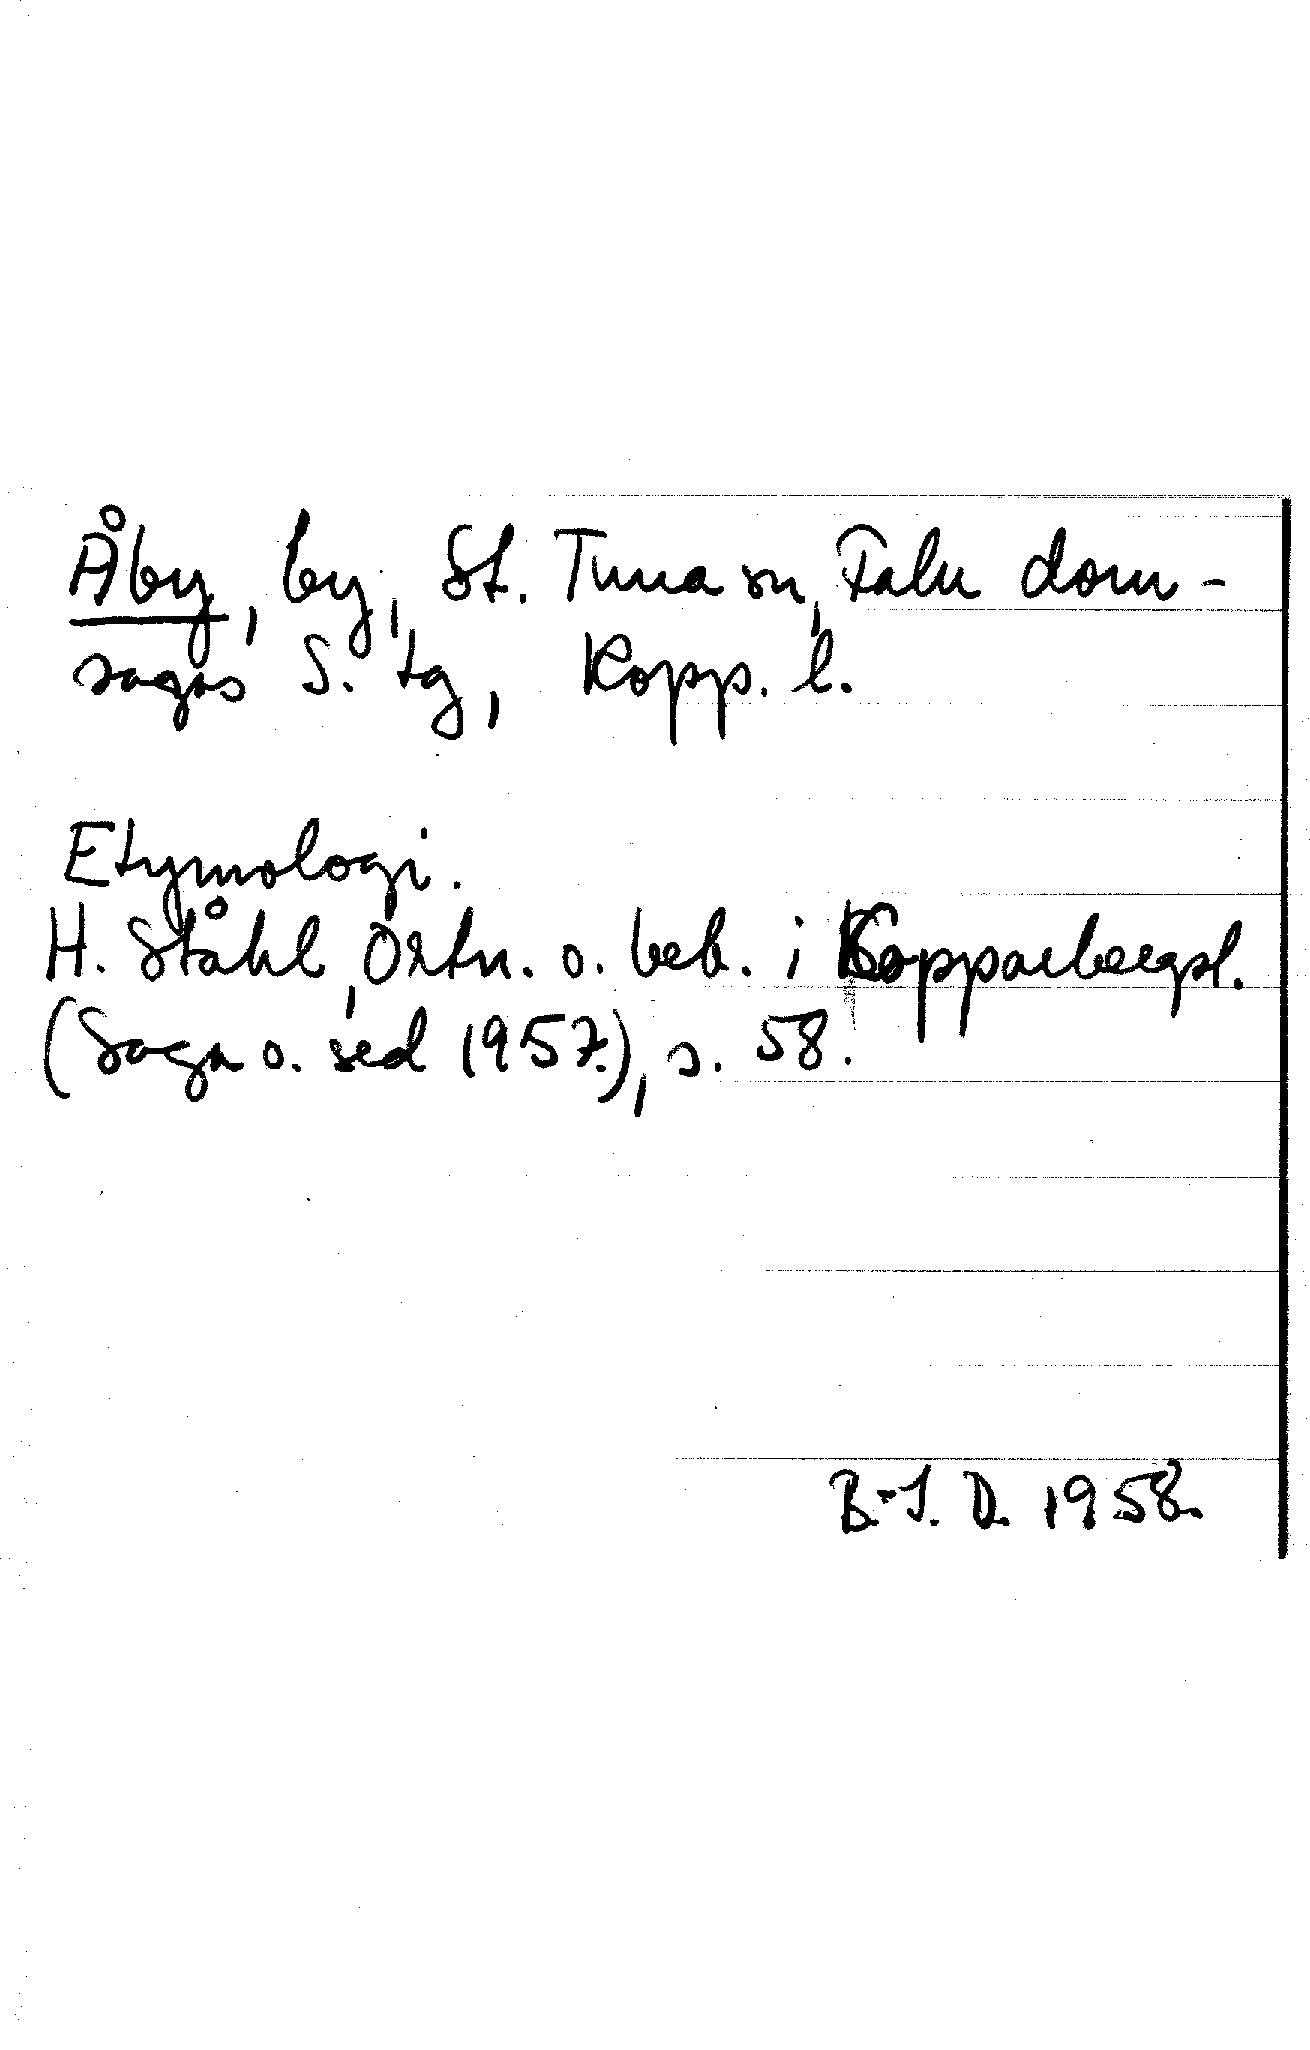 Åby, by, St. Tuna sn, Falu dom-
sagas S. tg, Kopp. l.
Etymologi.
H. Ståhl, Ortn. o. beb. i Kopparbergsl.
(Saga o. sed 1957.), s. 58.
B.-I. D. 1958.